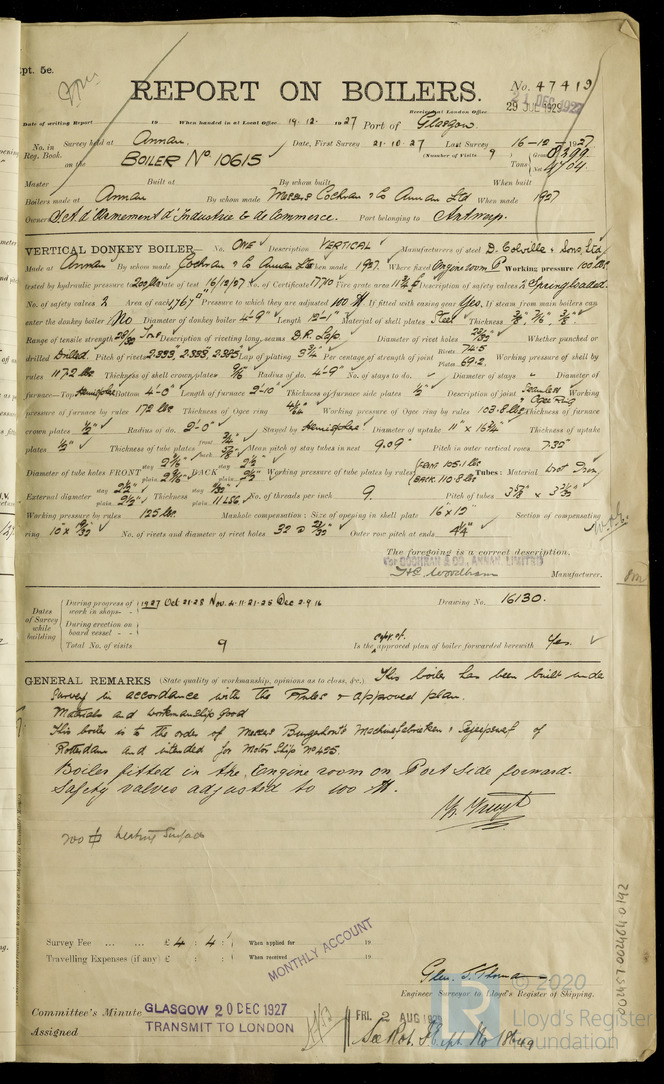 Rpt. 5e.
REPORT ON BOILERS.
No. 47419
21 DEC 1927
29 JUL 1929
Received at London Office
Date of writing Report 19 When handed in at Local Office 19.12. 1927 Port of Glasgow.
No. in Reg. Book. Survey held at Annan. Date, First Survey 21.10.27 Last Survey 16-12-1927
on the BOILER No. 10615 (Number of Visits 9) Tons Gross 8299 Net 4704
Master Built at By whom built When built
Boilers made at Annan By whom made Messrs Cochran & Co Annan Ltd When made 1927
Owners S.A. d'Armement d'Industrie & de Commerce. Port belonging to Antwerp.
VERTICAL DONKEY BOILER No. ONE Description VERTICAL Manufacturers of steel D. Colville & Sons, Ltd.
Made at Annan By whom made Cochran & Co Annan Ltd When made 1927. Where fixed Engine room P Working pressure 100 lbs.
tested by hydraulic pressure to 200 lbs Date of test 16/12/27 No. of Certificate 17710 Fire grate area Description of safety valves 2 Spring loaded.
No. of safety valves 2 Area of each 1.767" Pressure to which they are adjusted 100 If fitted with easing gear Yes. If steam from main boilers can
enter the donkey boiler No Diameter of donkey boiler 4'-9" Length 12'-1" Material of shell plates Steel Thickness 3/8", 7/16", 3/8".
Range of tensile strength 28/32 Tons Description of riveting long. seams D.R. Lap. Diameter of rivet holes 29/32 Whether punched or
drilled Drilled. Pitch of rivets 2.333", 2.333, 2.395 Lap of plating 3 3/4" Per centage of strength of joint Rivets 74.5 Plates 69.2 Working pressure of shell by
rules 117.2 lbs Thickness of shell crown plates 9/16 Radius of do. 4'-9" No. of stays to do. Diameter of stays Diameter of
furnace—Top Hemisphere Bottom 4'-0" Length of furnace 2'-10" Thickness of furnace side plates 1/2" Description of joint Seamless Ogee Ring Working
pressure of furnace by rules 172 lbs Thickness of Ogee ring Working pressure of Ogee ring by rules 103.8 lbs Thickness of furnace
crown plates 1/2" Radius of do. 2'-0" Stayed by Hemisphere Diameter of uptake 11" x 16 3/4" Thickness of uptake
plates 1/2" Thickness of tube plates front back Mean pitch of stay tubes in nest 9.09" Pitch in outer vertical rows 7.30"
Diameter of tube holes FRONT stay plain BACK stay plain Working pressure of tube plates by rules FRONT 105.1 lbs BACK 110.8 lbs Tubes: Material Wrot Iron
External diameter stay 2 1/2" plain 2 1/2" Thickness stay plain 11 LSG No. of threads per inch 9. Pitch of tubes
Working pressure by rules 125 lbs. Manhole compensation: Size of opening in shell plate 16 x 12" Section of compensating
ring No. of rivets and diameter of rivet holes 32 @ Outer row pitch at ends 4 1/4"
The foregoing is a correct description,
For COCHRAN & CO., ANNAN, LIMITED
H.C. Woodham Manufacturer.
Dates of Survey while building
During progress of work in shops - - 1927 Oct 21-28 Nov. 4-11-21-25 Dec 2.9.16 Drawing No. 16130.
During erection on board vessel - -
Total No. of visits 9 Is the copy of approved plan of boiler forwarded herewith Yes.
GENERAL REMARKS (State quality of workmanship, opinions as to class, &c.) This boiler has been built under
Survey in accordance with the Rules & approved plan.
Materials and workmanship good
This boiler is to the order of Messrs Burgerhout's Machinefabrieken & Scheepswerf of
Rotterdam and intended for Motor Ship No 495.
Boiler fitted in the Engine room on Port side forward.
Safety valves adjusted to 100
heating surface
Survey Fee ... ... £ 4 : 4 : When applied for 19
Travelling Expenses (if any) £ : : When received 19
MONTHLY ACCOUNT
Engineer Surveyor to Lloyd's Register of Shipping.
Committee's Minute GLASGOW 20 DEC 1927
Assigned TRANSMIT TO LONDON
FRI. 2 AUG 1929
See Rot. Rpt. No
© 2020
Lloyd's Register
Foundation
002457-002464-0192